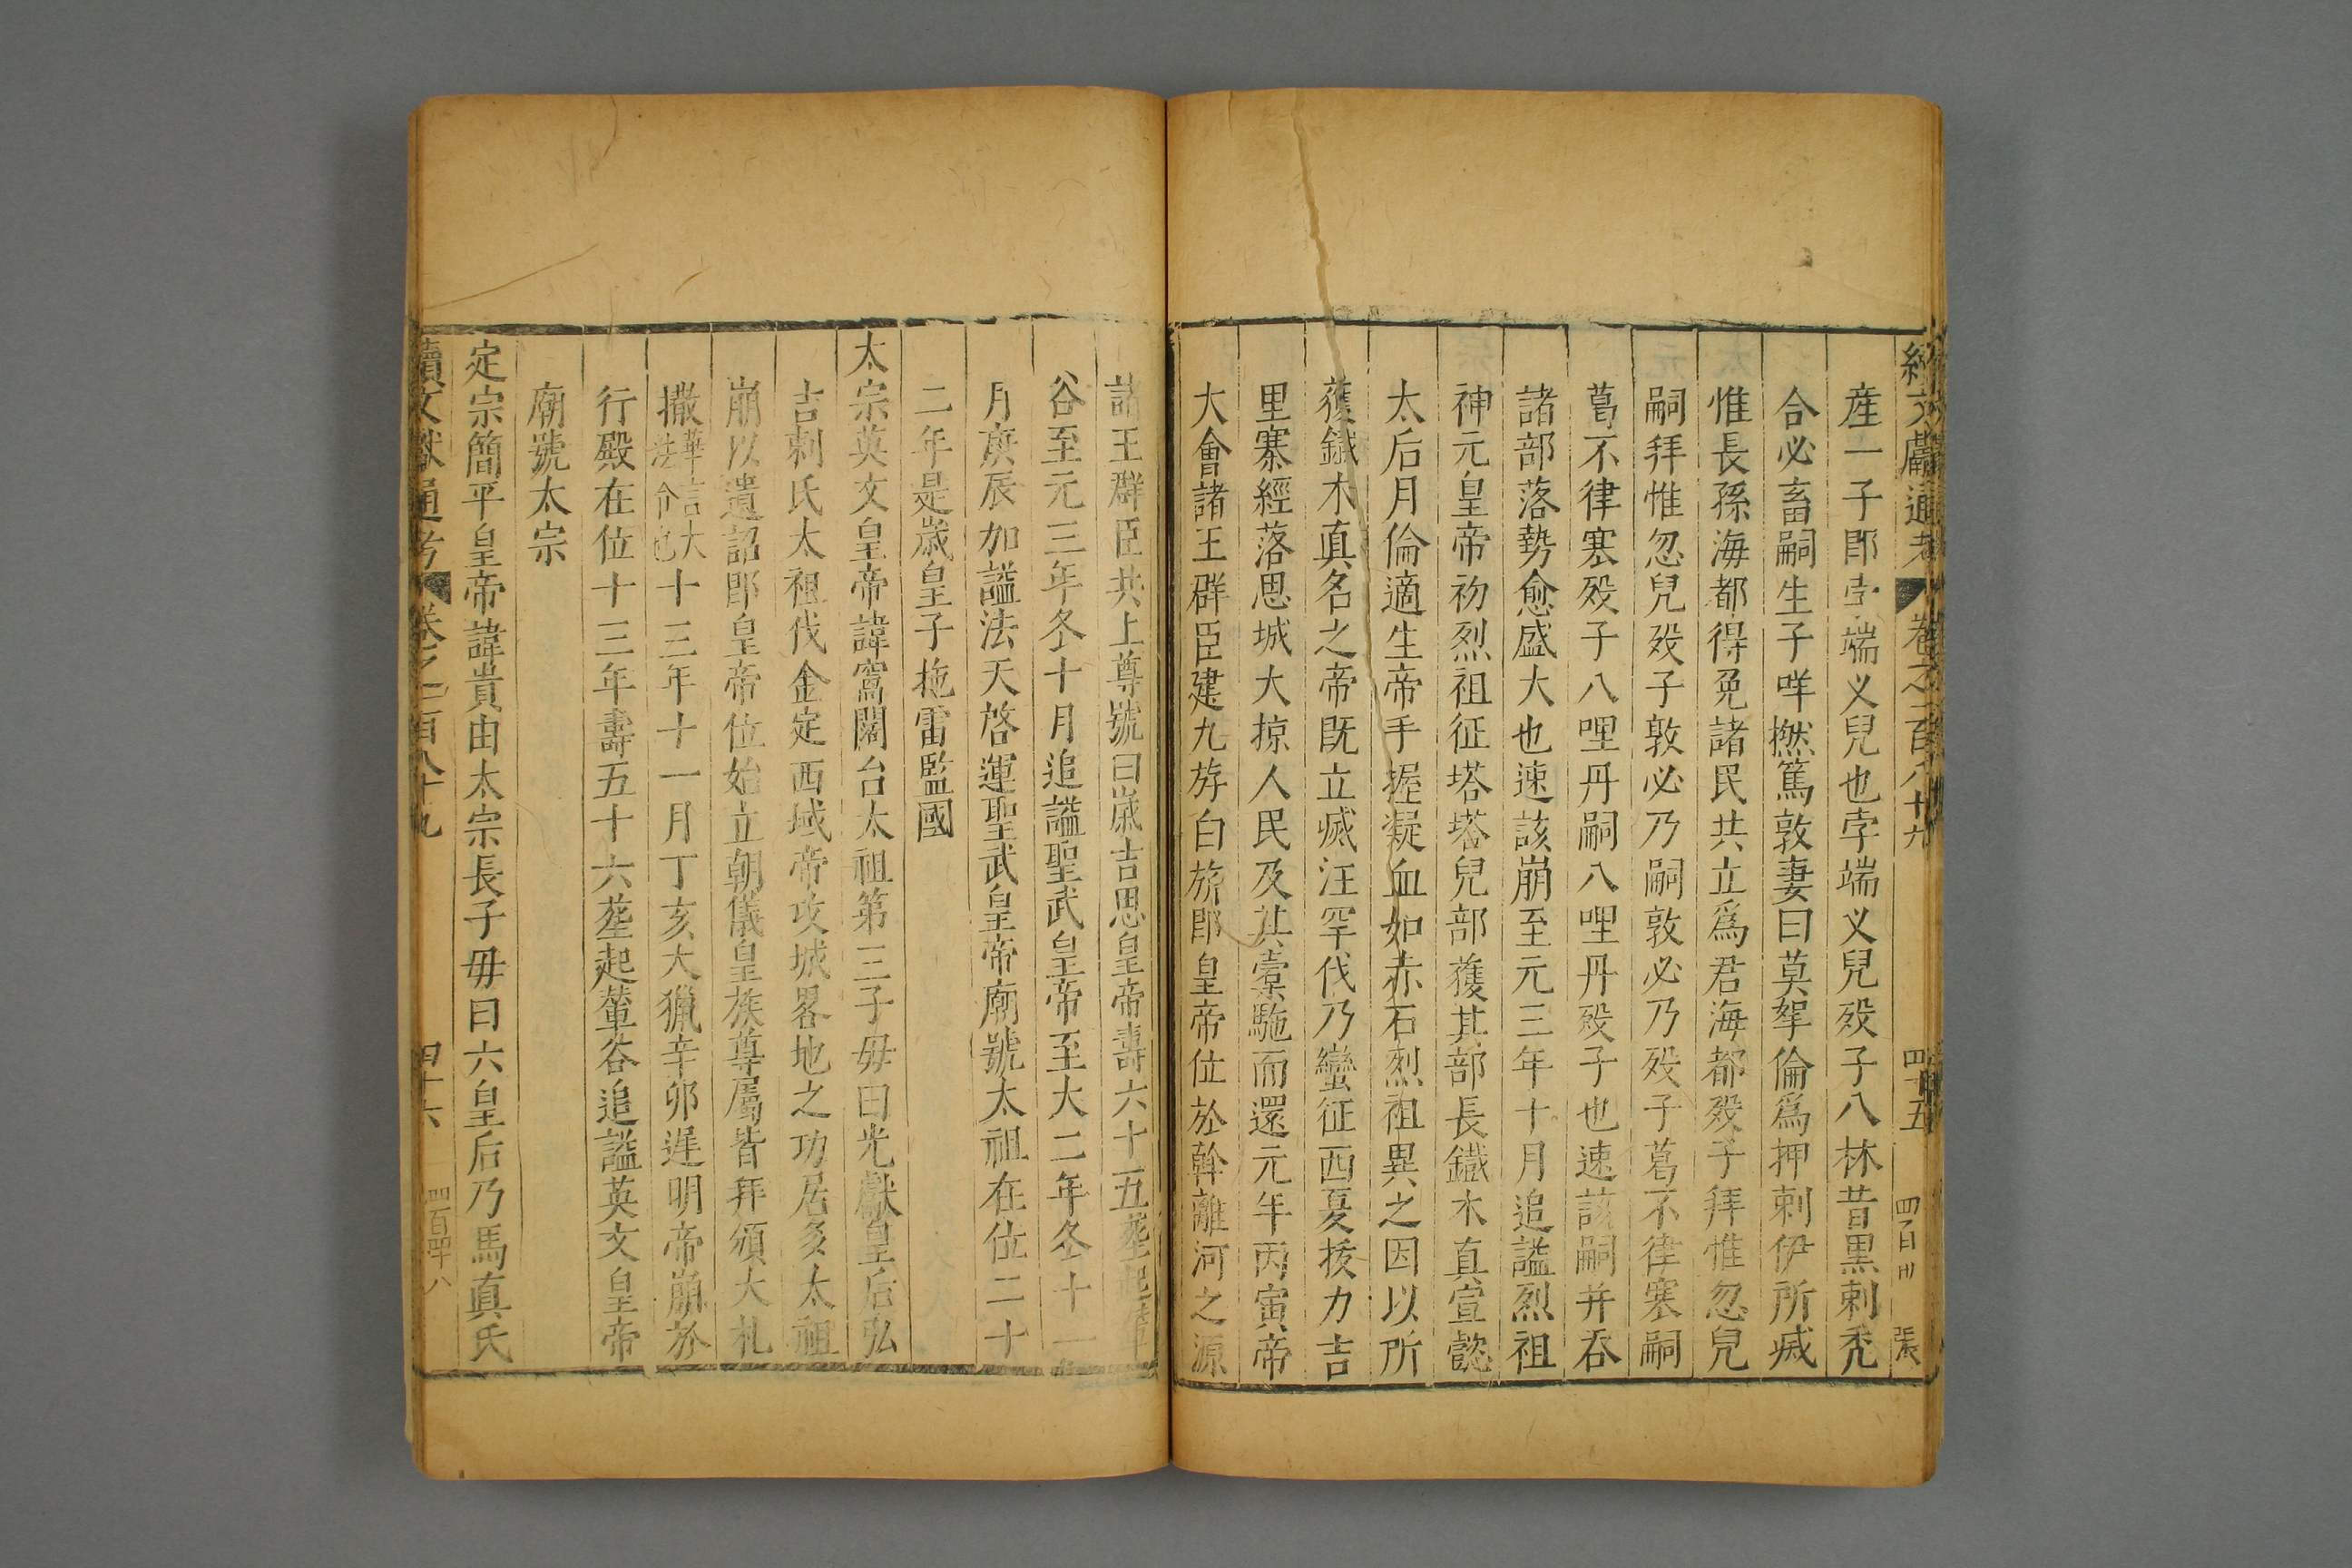 續文獻通考 卷之二百八十九 四十五
產一子即孛端义兒也孛端义兒歿子八林昔黑剌禿
合必畜嗣生子咩撚篤敦妻曰莫拏倫爲押剌伊所烕
惟長孫海都得免諸民共立爲君海都歿子拜惟忽兒
嗣拜惟忽兒歿子敦必乃嗣敦必乃歿子葛不律寒嗣
葛不律寒歿子八哩丹嗣八哩丹歿子也速該嗣并吞
諸部落勢愈盛大也速該崩至元三年十月追諡烈祖
神元皇帝初烈祖征塔塔兒部獲其部長鐵木真宣懿
太后月倫適生帝手握凝血如赤石烈祖異之因以所
獲鐵木真名之帝既立烕汪罕伐乃蠻征西夏拔力吉
里寨經落思城大掠人民及其槖駞而還元年丙寅帝
大會諸王群臣建九斿白旂即皇帝位於斡離河之源
諸王群臣共上尊號曰歲吉思皇帝壽六十五塟起輦
谷至元三年冬十月追諡聖武皇帝至大二年冬十一
月庚辰加諡法天啓運聖武皇帝廟號太祖在位二十
二年是歲皇子拖雷監國
太宗英文皇帝諱窩闊台太祖第三子毋曰光獻皇后弘
吉剌氏太祖伐金定西域帝攻城畧地之功居多太祖
崩以遺詔即皇帝位始立朝儀皇族尊屬皆拜頒大札
撒華言大法令也十三年十一月丁亥大獵辛卯遲明帝崩於
行殿在位十三年壽五十六塟起輦谷追諡英文皇帝
廟號太宗
定宗簡平皇帝諱貴由太宗長子毋曰六皇后乃馬真氏
續文獻通考 卷之二百八十九 四十六 四百四十八